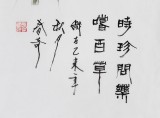 時珍問藥
嚐百草
歲在乙未之年
秋月
春奇